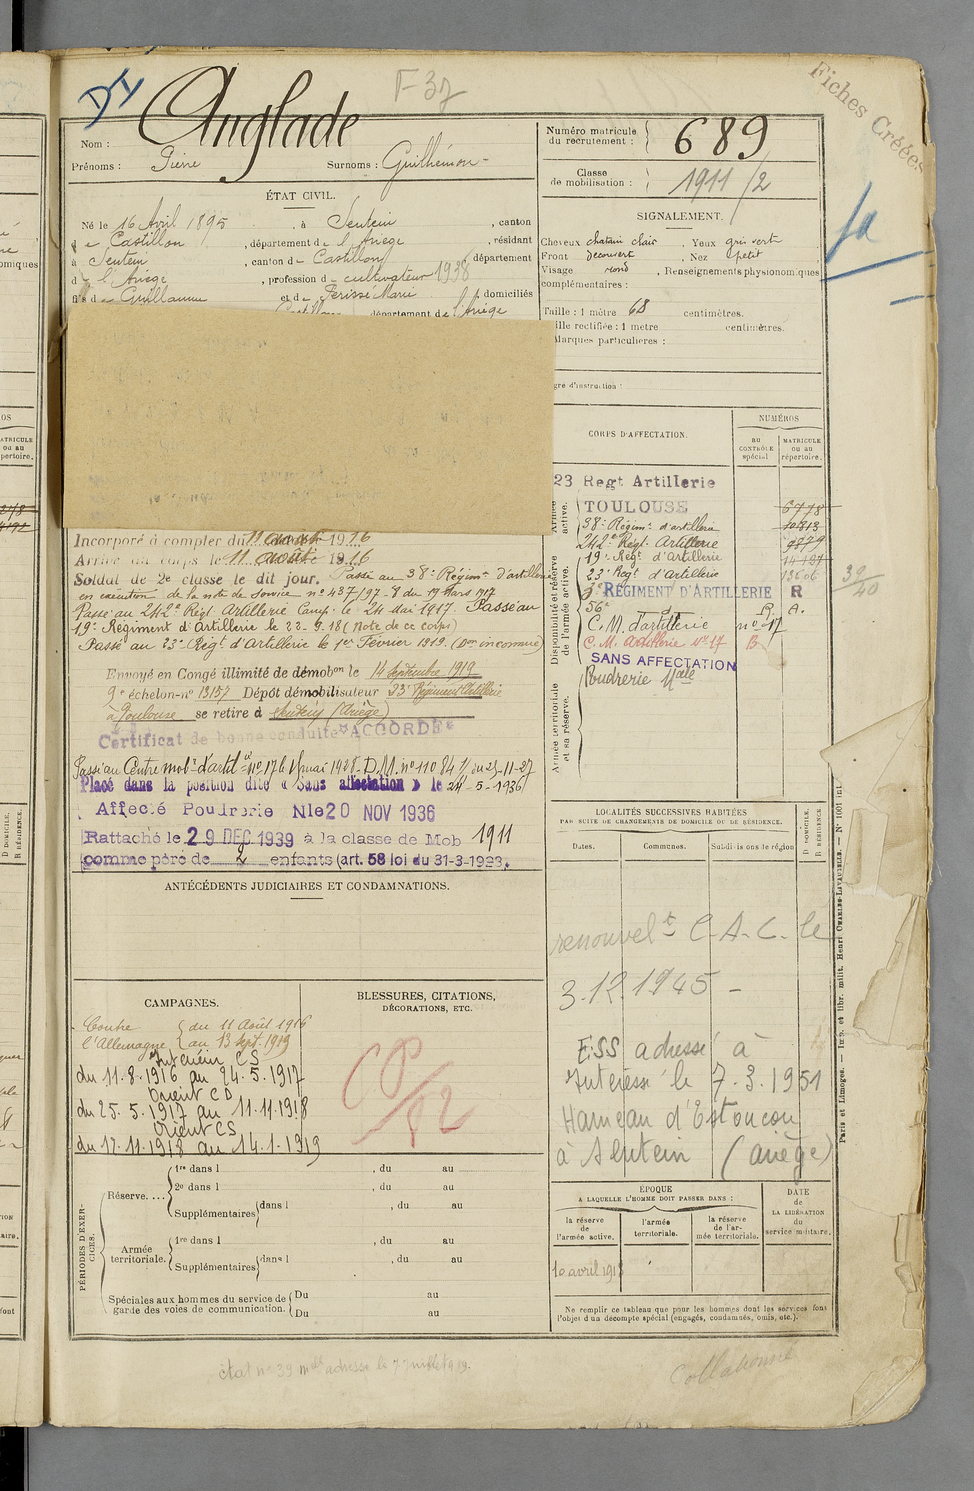 DI
F-37
Fiches Créées
Nom : Anglade
Prénoms : Pierre Surnoms : Guilhémou
Numéro matricule du recrutement : 689
Classe de mobilisation : 1911/2
ÉTAT CIVIL.
Né le 16 Avril 1895, à Sentein, canton
de Castillon, département de l'Ariège, résidant
à Sentein, canton de Castillon, département
d l'Ariège, profession de cultivateur 1938
fils de Guillaume et de Périssé Marie, domiciliés
département de l'Ariège
SIGNALEMENT.
Cheveux chatain clair. Yeux gris vert
Front découvert, Nez petit
Visage rond, Renseignements physionomiques
complémentaires :
Taille : 1 mètre 68 centimètres.
Taille rectifiée : 1 mètre centimètres.
Marques particulières :
gré d'instruction :
CORPS D'AFFECTATION.
NUMÉROS
au CONTRÔLE spécial
MATRICULE ou au répertoire.
Armée active.
23 Regt Artillerie
TOULOUSE 6778
38e Régimt d'artillerie
242e Régt Artillerie
19e Régt d'Artillerie
23e Regt d'Artillerie
RÉGIMENT D'ARTILLERIE R
56e
C.M. d'artillerie no 17
C.M. Artillerie no 17 B
SANS AFFECTATION
Poudrerie Nale
39/40
Disponibilité et réserve de l'armée active.
Armée territoriale et sa réserve.
Incorporé à compter du 11 août 1916
Arrivé au corps le 11 août 1916
Soldat de 2e classe le dit jour. Passé au 38e Régimt d'artillerie
en exécution de la note de service no 437/197-8 du 19 Mars 1917
Passé au 242e Régt Artillerie Camp. le 24 Mai 1917. Passé au
19e Régiment d'Artillerie le 23-9-18 (Note de ce corps)
Passé au 23e Régt d'Artillerie le 1er Février 1919. (Don inconnue)
Envoyé en Congé illimité de démobon le 14 Septembre 1919
9e échelon-no 13157 Dépôt démobilisateur 23e Régiment Artillerie
à Toulouse se retire à Sentein (Ariège)
Certificat de bonne conduite "ACCORDÉ"
Passé au Centre mobre d'artie no 17 le 1 mai 1928. D.M. no 110 84 1/ du 25-11-27
Placé dans la position dite « Sans affectation » le 24-5-1936
Affecté Poudrerie Nle 20 NOV 1936
Rattaché le 29 DEC 1939 à la classe de Mob 1911
comme père de 2 enfants (art. 58 loi du 31-3-1928.
ANTÉCÉDENTS JUDICIAIRES ET CONDAMNATIONS.
LOCALITÉS SUCCESSIVES HABITÉES
PAR SUITE DE CHANGEMENTS DE DOMICILE OU DE RÉSIDENCE.
Dates. Communes. Subdivisions de région
D DOMICILE.
R RÉSIDENCE
renouvelt C.A.C. le
3.12.1945 -
ESS adressé à
Intéressé le 7.3.1951
Hameau d'Estoucou
à Sentein (Ariège)
CAMPAGNES.
Contre l'Allemagne { du 11 Août 1916
au 13 Sept. 1919
Intérieur CS
du 11.8.1916 au 24.5.1917
Orient CD
du 25.5.1917 au 11.11.1918
Orient CS
du 12.11.1918 au 14.1.1919
BLESSURES, CITATIONS,
DÉCORATIONS, ETC.
PÉRIODES D'EXERCICES.
Réserve....
1re dans l , du au
2e dans l , du au
Supplémentaires dans l , du au
Armée territoriale.
1re dans l , du au
Supplémentaires dans l , du au
Spéciales aux hommes du service de garde des voies de communication.
Du au
Du au
ÉPOQUE
A LAQUELLE L'HOMME DOIT PASSER DANS :
la réserve de l'armée active.
l'armée territoriale.
la réserve de l'armée territoriale.
DATE de LA LIBÉRATION du service militaire.
10 avril 1918
Ne remplir ce tableau que pour les hommes dont les services font
l'objet d'un décompte spécial (engagés, condamnés, omis, etc.).
Paris et Limoges. — Imp. et libr. milit. Henri CHARLES-LAVAUZELLE. — No 1001 int.
état no 39 mdl adressé le 7 juillet 1919.
Collationné